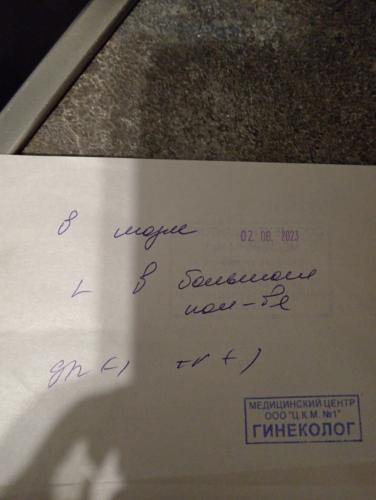 в мазке 02.08.2023
L в большом
кол-ве
gn (-) tr (-)
МЕДИЦИНСКИЙ ЦЕНТР
ООО "Ц.К.М. №1"
ГИНЕКОЛОГ